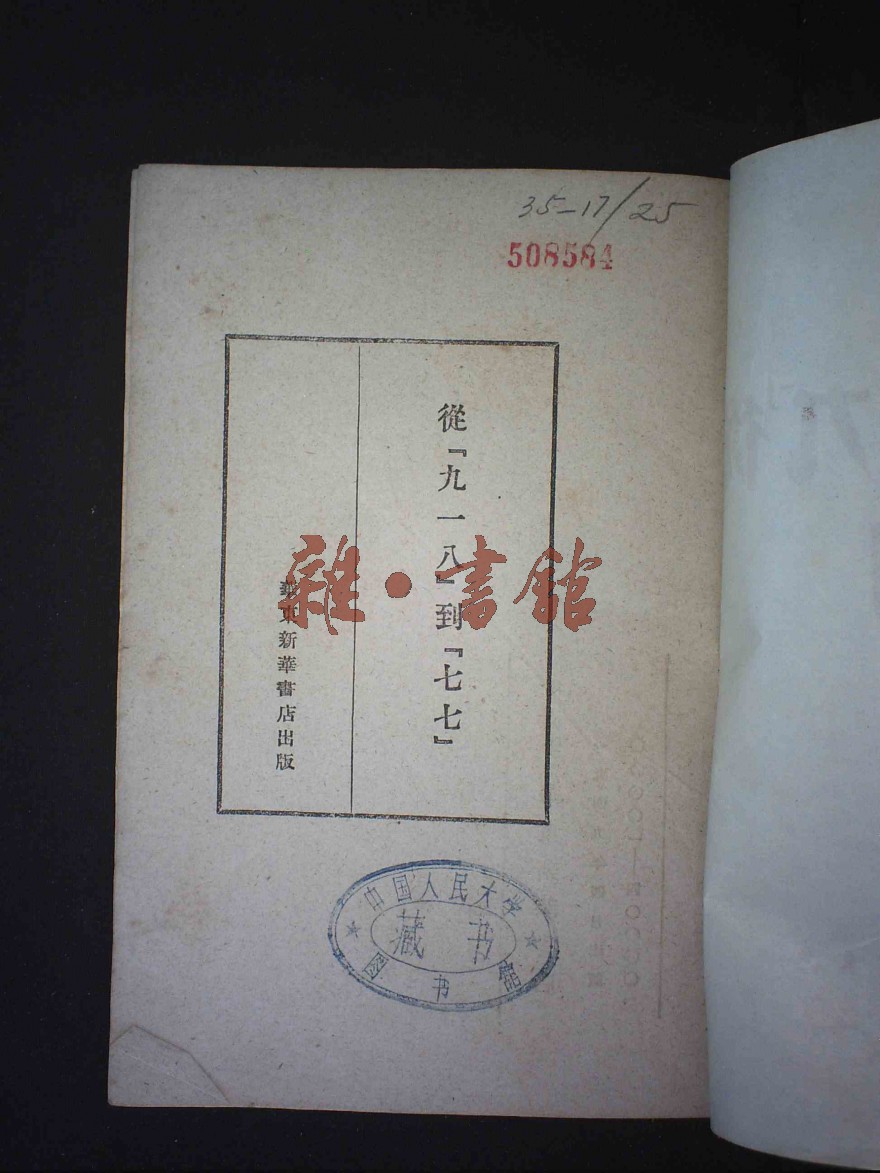 35-17/25
508584
從『九一八』到『七七』
華東新華書店出版
雜·書館
中国人民大学
藏书
图书馆